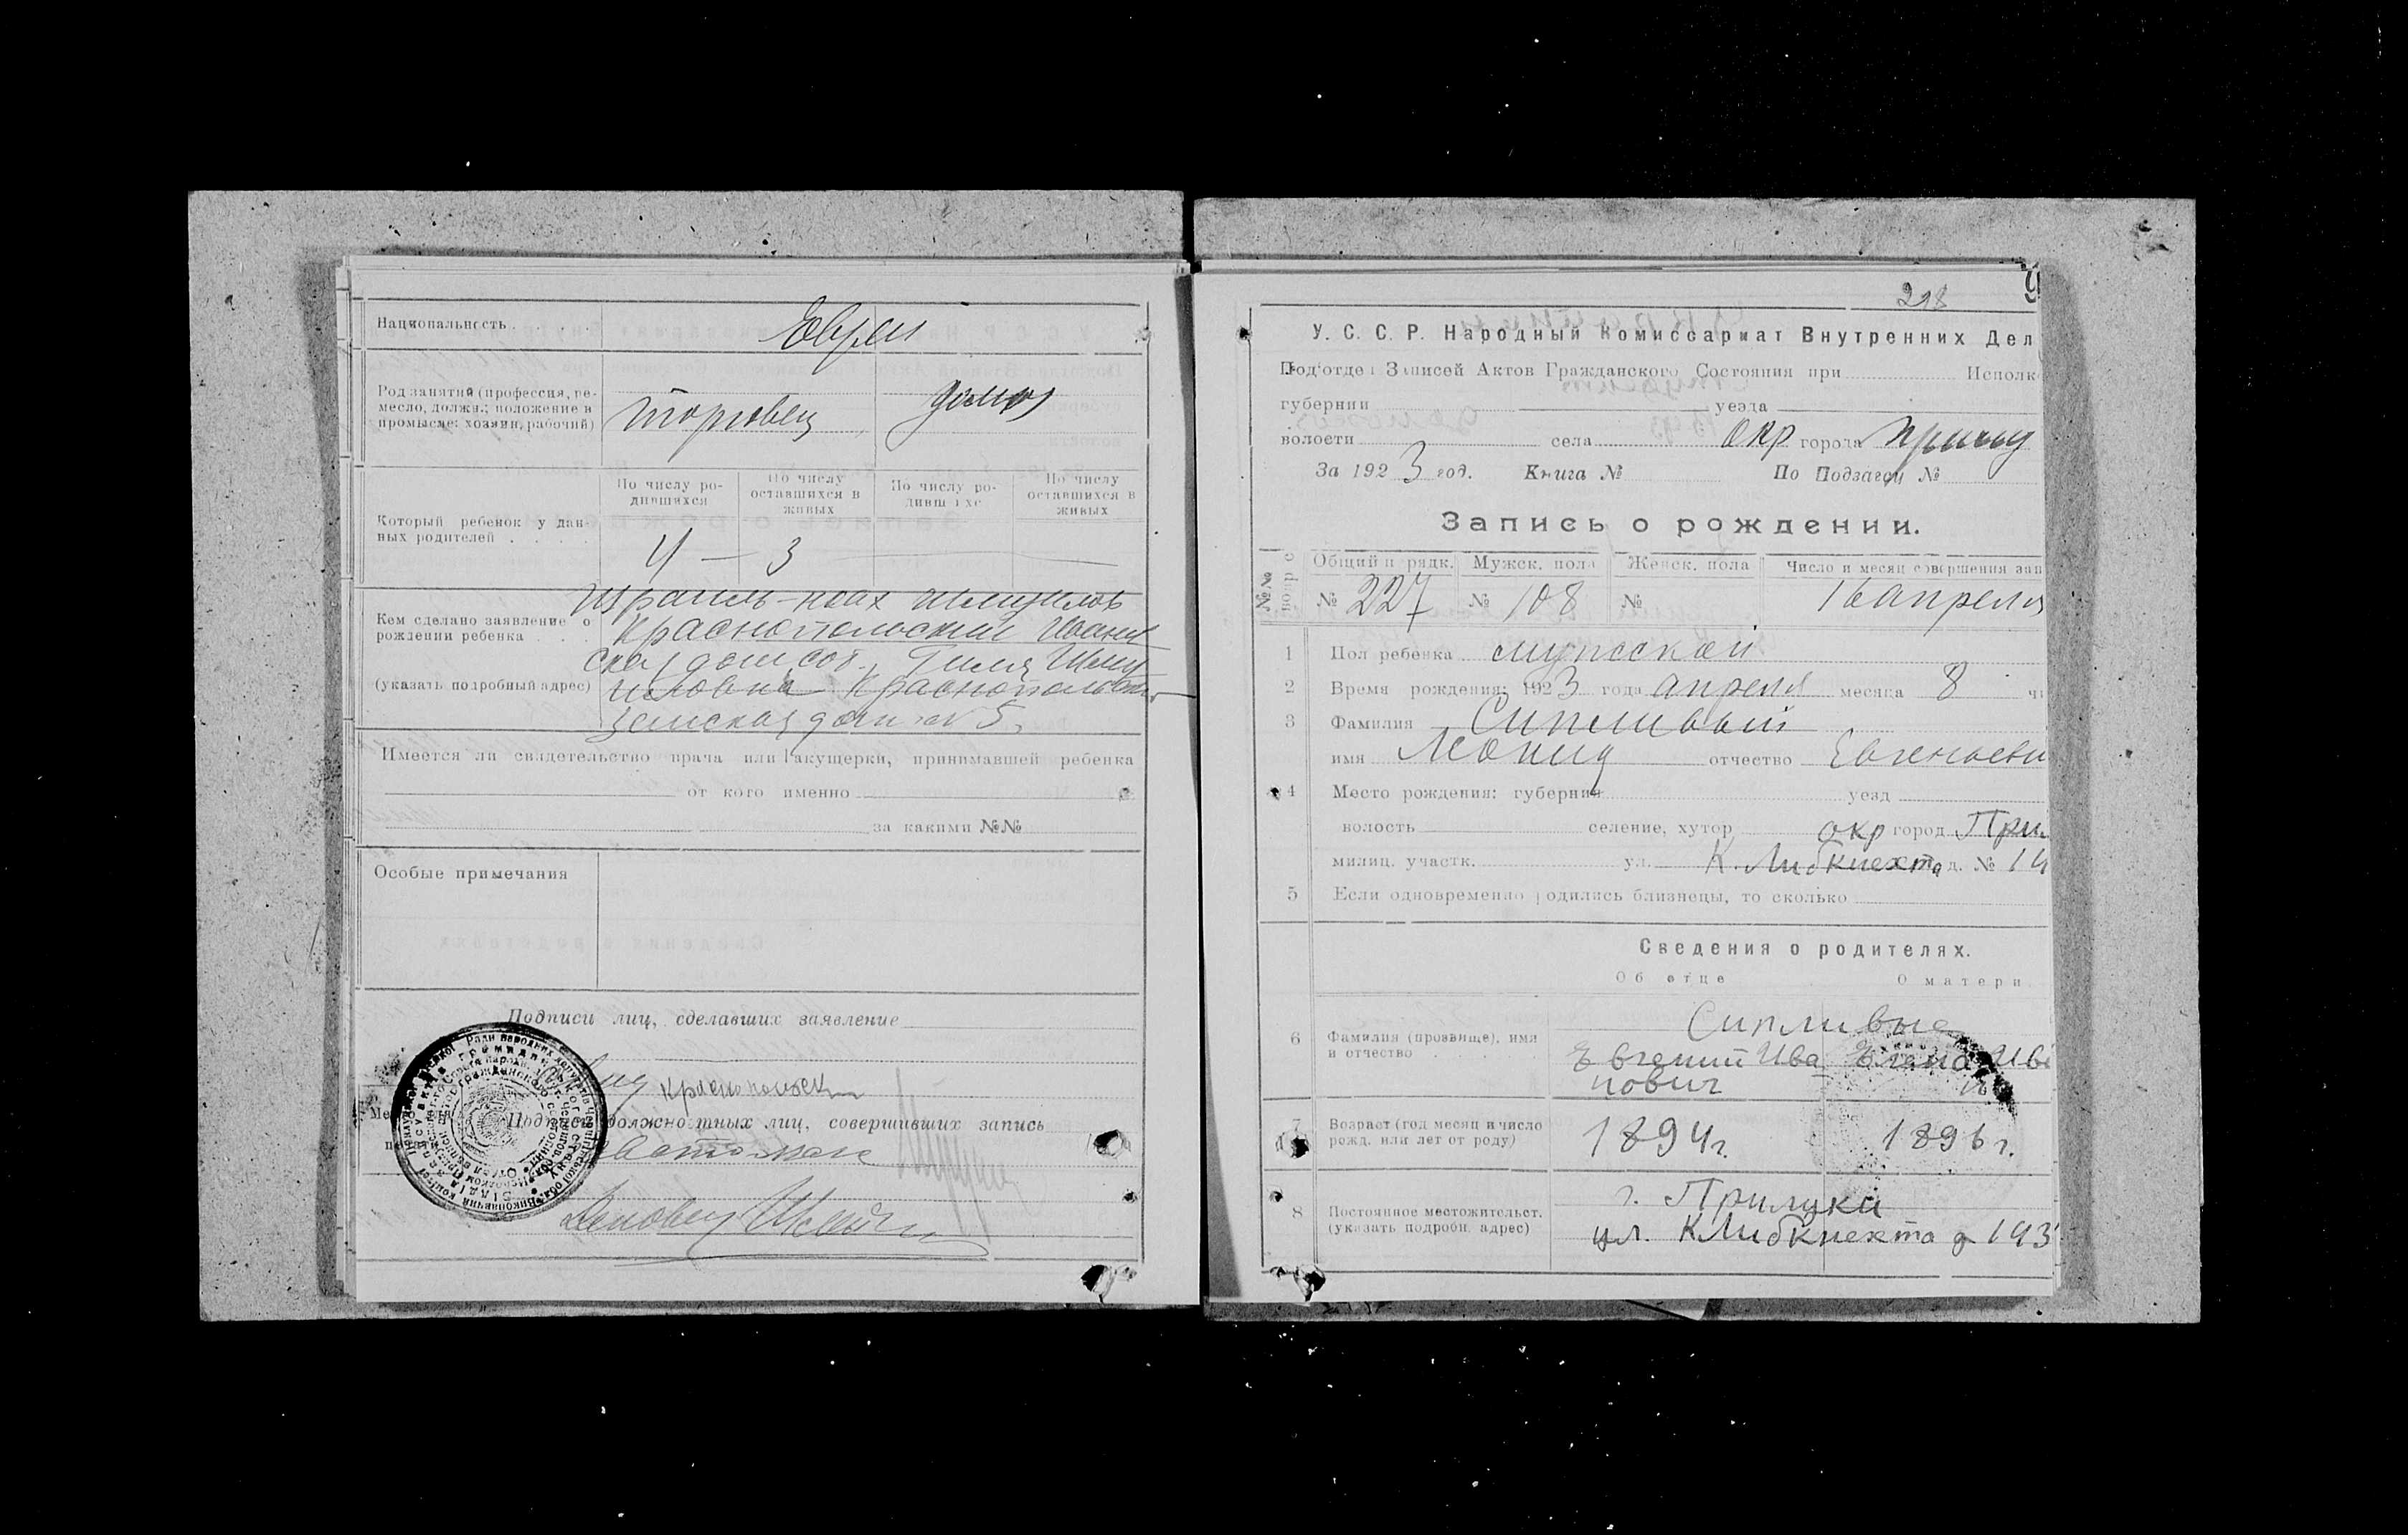 Национальность
Евреи
Род занятий (профессия, ре-
месло, должн.; положение в
промысле: хозяин, рабочий)
торговец
По числу ро-
дившихся
По числу
оставшихся в
живых
По числу ро-
дивш хс
По числу
оставшихся в
живых
Который ребенок у дан-
ных родителей . . . .
4 — 3
Кем сделано заявление о
рождении ребенка . . .
(указать подробный адрес)
Краснопольский
дом соб.
дом № 5
Имеется ли свидетельство врача или акушерки, принимавшей ребенка
от кого именно
за какими №№
Особые примечания
Подписи лиц, сделавших заявление
Краснопольск
Подписи должностных лиц, совершивших запись
218
9
У. С. С. Р. Народный Комиссариат Внутренних Дел
Под'отдел Записей Актов Гражданского Состояния при Исполк
губернии уезда
волости села окр города Прилук
За 1923 год. Книга № По Подзагсу №
Запись о рождении.
№№ Общий п рядк. Мужск. пола Женск. пола Число и месяц совершения зап
№ 227 № 108 № 16 апреля
1 Пол ребенка мужской
2 Время рождения: 1923 года апреля месяца 8 чи
3 Фамилия Сипливый
имя Леонид отчество Евгеньеви
4 Место рождения: губерния уезд
волость селение, хутор окр город При
милиц. участк. ул. К. Либкнехта д. № 14
5 Если одновременно родились близнецы, то сколько
Сведения о родителях.
Об отце О матери
Сипливые
6 Фамилия (прозвище), имя
и отчество
Евгений Ива
нович
Елена Ива
7 Возраст (год месяц и число
рожд. или лет от роду)
1894г. 1896 г.
8 Постоянное местожительст.
(указать подробн. адрес)
г. Прилуки
ул. К Либкнехта д 143